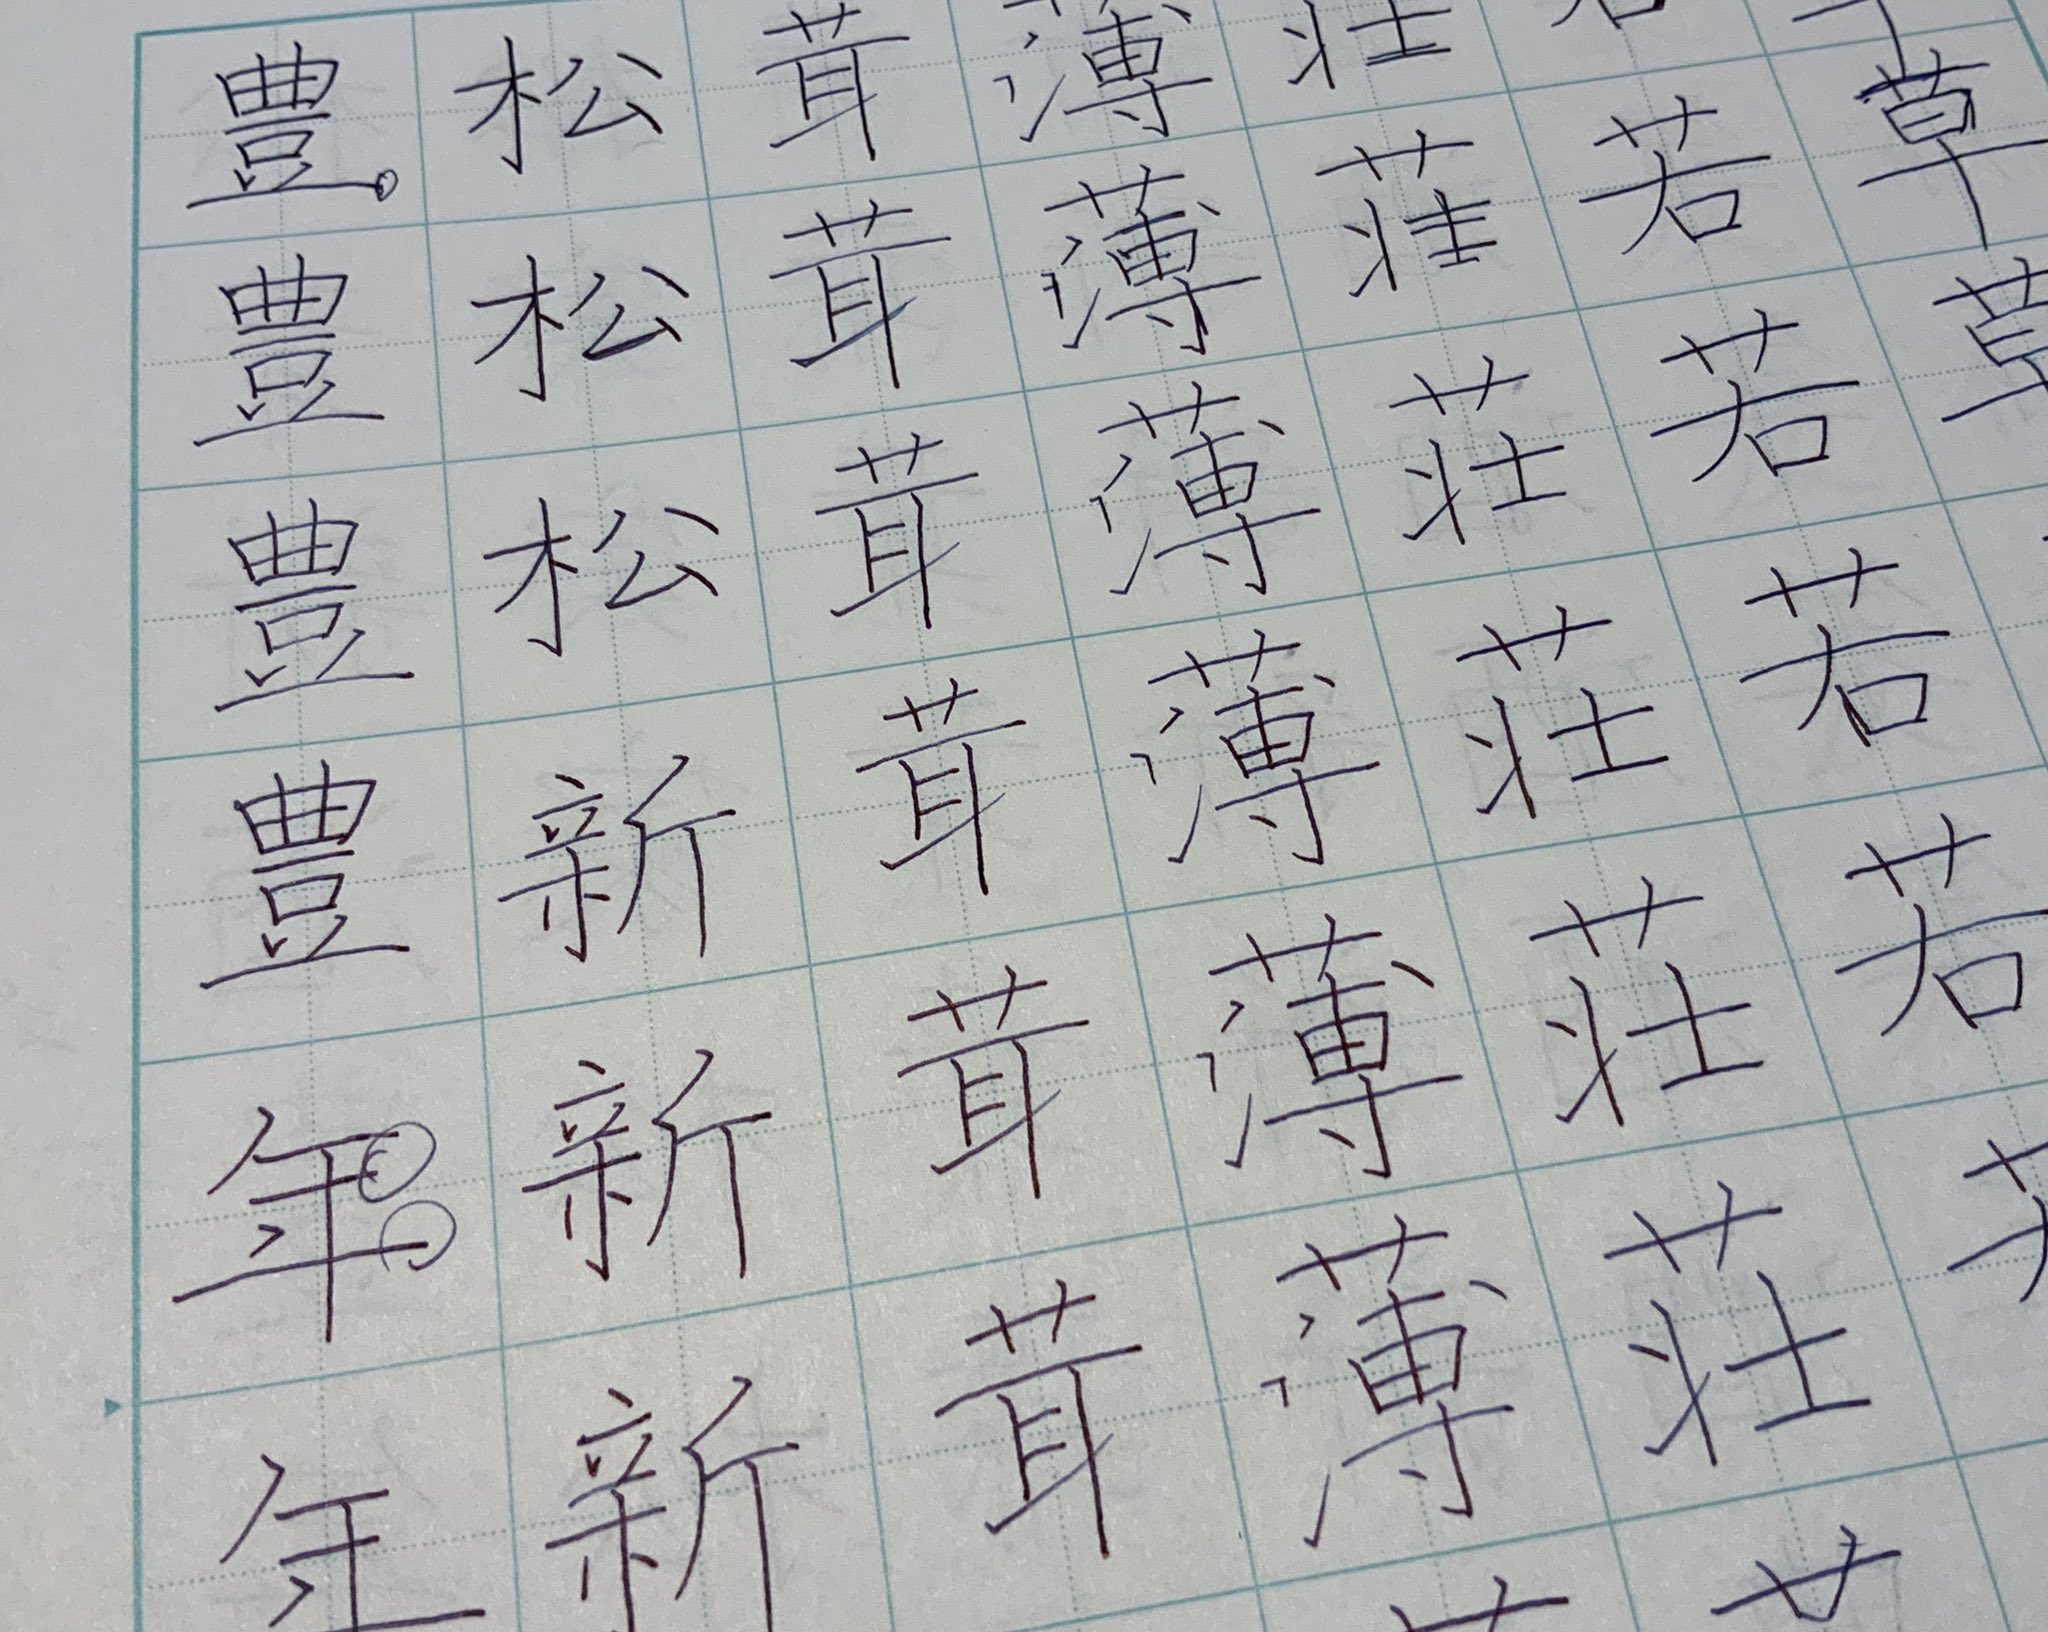 草草
若若若若若若
荘荘荘荘荘荘
薄薄薄薄薄薄
茸茸茸茸茸茸
松松松新新新
豊豊豊豊年年